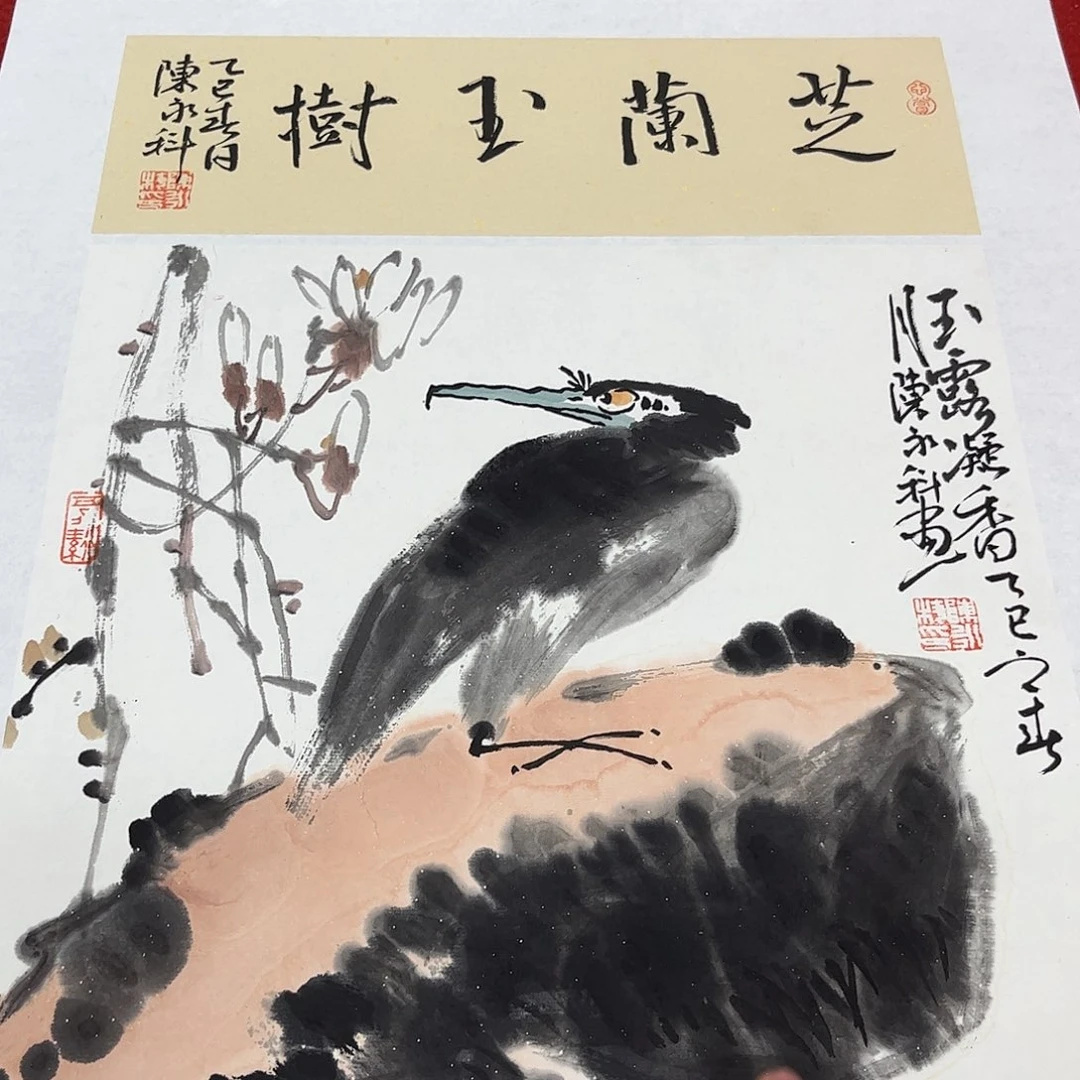 芝蘭玉樹
乙巳春日
陳永科
玉露凝香 乙巳之春
陳永科畫